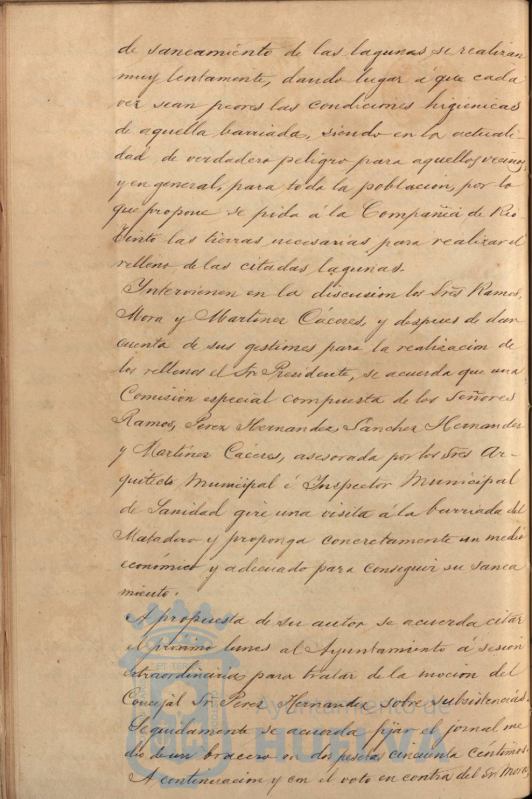 de saneamiento de las lagunas se realizan
muy lentamente, dando lugar á que cada
vez sean peores las condiciones higienicas
de aquella barriada, siendo en la actuali-
dad de verdadero peligro para aquellos vecinos,
y en general, para toda la poblacion, por lo
que propone se pida á la Compañia de Rio
Tinto las tierras necesarias para realizar el
relleno de las citadas lagunas.
Intervienen en la discusion los Sres Ramos,
Mora y Martinez Cáceres, y despues de dar
cuenta de sus gestiones para la realizacion de
los rellenos el Sr. Presidente, se acuerda que una
Comisión especial compuesta de los Señores
Ramos, Perez Hernandez, Sanchez Hernandez
y Martinez Caceres, asesorada por los Sres Ar-
quitecto Municipal é Inspector Municipal
de Sanidad gire una visita á la barriada del
Matadero y proponga concretamente un medio
económico y adecuado para conseguir su sanea
miento.
A propuesta de su autor se acuerda citar
el próximo lunes al Ayuntamiento á sesion
extraordinaria, para tratar de la mocion del
Concejal Sr. Perez Hernandez sobre subsistencias.
Seguidamente se acuerda fijar el jornal me
dio de un bracero en dos pesetas cincuenta centimos.
A continuacion y con el voto en contra del Sr. Mora,
Ayuntamiento de
HUELVA